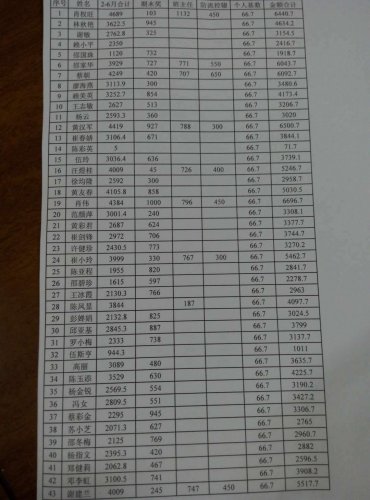 序号 姓名 2-6月合计 期末奖 班主任 防流控辍 个人基勤 金额合计
1 4689 103 1132 450 66.7 6440.7
2 林秋艳 3622.5 945 66.7 4634.2
3 谢敏 2762.8 325 66.7 3154.5
4 赖小平 2350 66.7 2416.7
5 邵国珠 1120 732 66.7 1918.7
6 邵家华 3929 727 771 550 66.7 6043.7
7 蔡顺 4249 420 707 650 66.7 6092.7
8 廖海燕 3113.9 300 66.7 3480.6
9 赖美英 3252.7 854 66.7 4173.4
10 王志敏 2627 513 66.7 3206.7
11 杨云 2593.3 360 66.7 3020
12 黄汉军 4419 927 788 300 66.7 6500.7
13 崔春娟 3106.4 671 66.7 3844.1
14 陈彩英 5 66.7 71.7
15 伍玲 3036.4 636 66.7 3739.1
16 汪煜桂 4009 45 726 400 66.7 5246.7
17 徐均隆 2592 300 66.7 2958.7
18 黄友春 4105.8 858 66.7 5030.5
19 肖伟 4384 1000 796 450 66.7 6696.7
20 范颜萍 3001.4 240 66.7 3308.1
21 黄彩君 2687 624 66.7 3377.7
22 崔剑锋 2972 706 66.7 3744.7
23 许健珍 2430.5 773 66.7 3270.2
24 崔小玲 3999 330 767 300 66.7 5462.7
25 陈亚程 1955 820 66.7 2841.7
26 邵碧珍 1615 597 66.7 2278.7
27 王冰霞 2130.3 766 66.7 2963
28 陈凤显 3844 187 66.7 4097.7
29 彭婵娟 2132.8 825 66.7 3024.5
30 邱亚基 2845.3 887 66.7 3799
31 罗小梅 2333 738 66.7 3137.7
32 伍斯亨 944.3 66.7 1011
33 高丽 3089 480 66.7 3635.7
34 陈玉添 3529 630 66.7 4225.7
35 杨金锐 2569.5 554 66.7 3190.2
36 冯女 2809.5 551 66.7 3427.2
37 蔡彩金 2295 945 66.7 3306.7
38 苏小芝 2071.3 627 66.7 2765
39 邵冬梅 2125 769 66.7 2960.7
40 杨指文 2395.3 420 66.7 2882
41 郑健莉 2062.8 467 66.7 2596.5
42 邓李虹 3100.5 741 66.7 3908.2
43 谢建兰 4009 245 747 450 66.7 5517.7